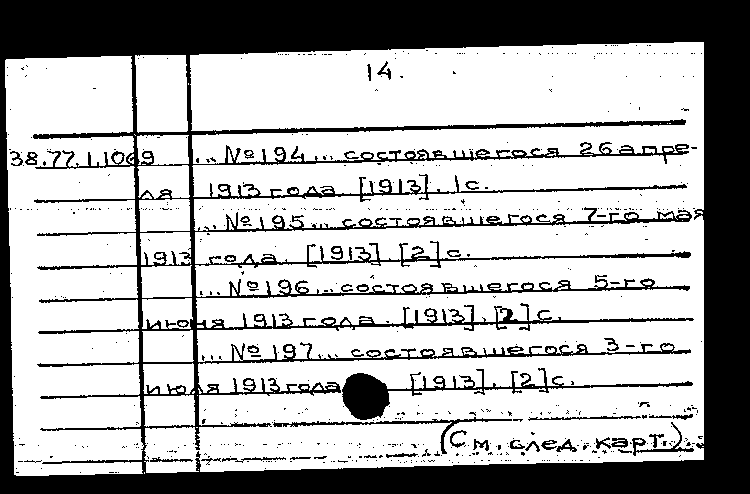 14.
38.77.1.1069 ... №194... состоявшегося 26 апре-
ля 1913 года. [1913]. 1с.
... №195... состоявшегося 7-го мая
1913 года. [1913]. [2]с.
... №196... состоявшегося 5-го
июня 1913 года. [1913]. [2]с.
... №197... состоявшегося 3-го
июля 1913 года [1913]. [2]с.
(См. след. карт.).